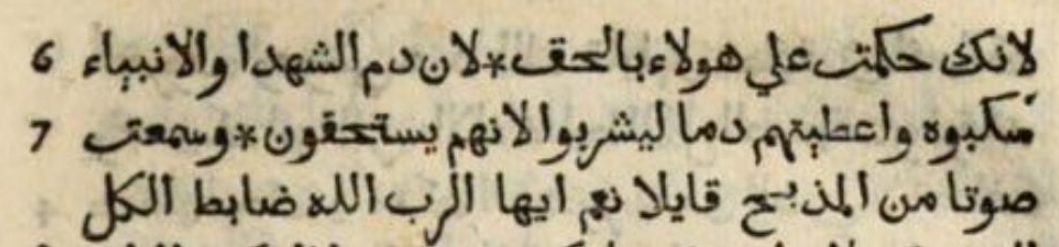 لانك حكمت علي هولاء بالحق * لان دم الشهدا والانبياء 6
سكبوه واعطيتهم دما ليشربوا لانهم يستحقون * وسمعت 7
صوتا من المذبح قايلا نعم ايها الرب الله ضابط الكل